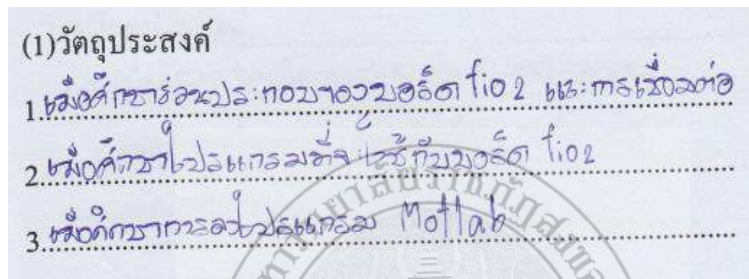 (1)วัตถุประสงค์
1 เพื่อศึกษาส่วนประกอบของบอร์ด fio 2 และการเชื่อมต่อ
2 เพื่อศึกษาโปรแกรมที่จะใช้กับบอร์ด fio2
3 เพื่อศึกษาการลงโปรแกรม Motlab